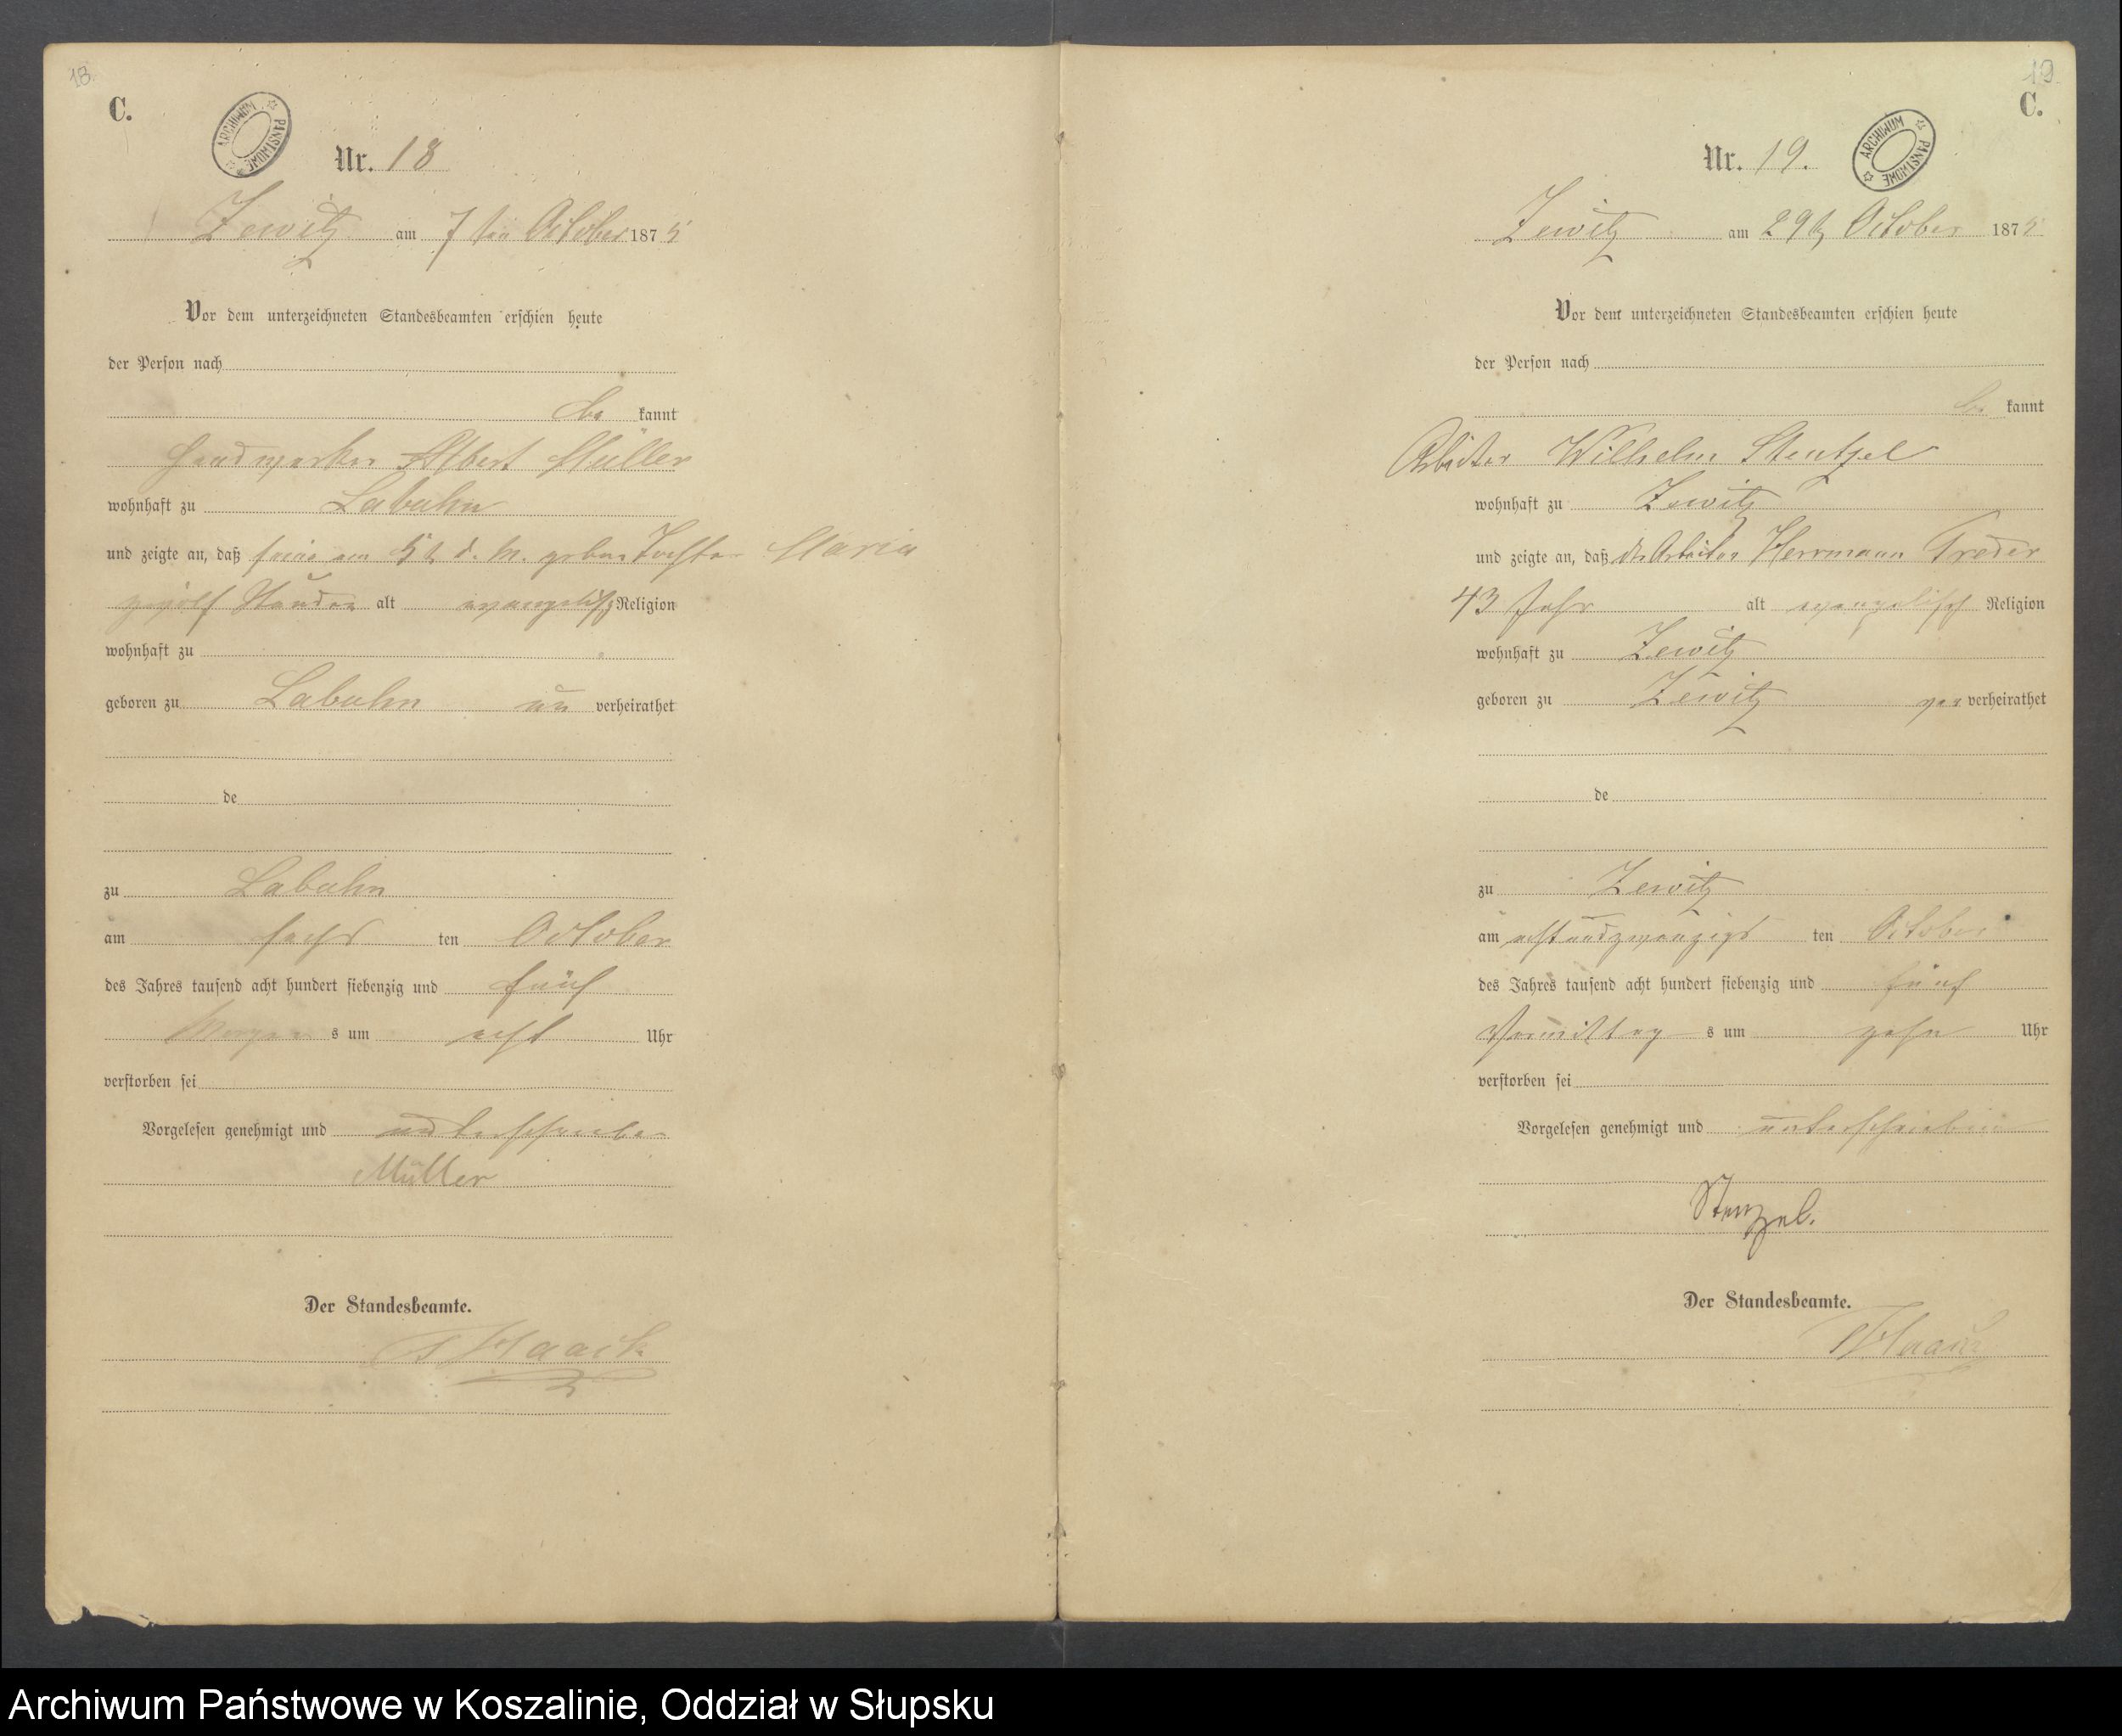 18.
C.
ARCHIWUM PAŃSTWOWE
Nr. 18
Zewitz am 7ten October 1875
Vor dem unterzeichneten Standesbeamten erschien heute
der Person nach
be kannt
Albert Müller
wohnhaft zu Labuhn
und zeigte an, daß seine am 5t d. M. gebor Tochter Maria
zwölf Stunden alt evangelisch Religion
wohnhaft zu
geboren zu Labuhn un verheirathet
de
zu Labuhn
am sechs ten October
des Jahres tausend acht hundert siebenzig und fünf
Morgen s um acht Uhr
verstorben sei
Vorgelesen genehmigt und unterschrieben
Müller
Der Standesbeamte.
Haack
19
C.
ARCHIWUM PAŃSTWOWE
Nr. 19.
Zewitz am 29t October 1875
Vor dem unterzeichneten Standesbeamten erschien heute
der Person nach
be kannt
Arbeiter Wilhelm Stentzel
wohnhaft zu Zewitz
und zeigte an, daß der Arbeiter Herrmann Treder
43 Jahr alt evangelisch Religion
wohnhaft zu Zewitz
geboren zu Zewitz ver verheirathet
de
zu Zewitz
am achtundzwanzigs ten October
des Jahres tausend acht hundert siebenzig und fünf
Vormittag s um zehn Uhr
verstorben sei
Vorgelesen genehmigt und unterschrieben
Stenzel.
Der Standesbeamte.
Haack
Archiwum Państwowe w Koszalinie, Oddział w Słupsku